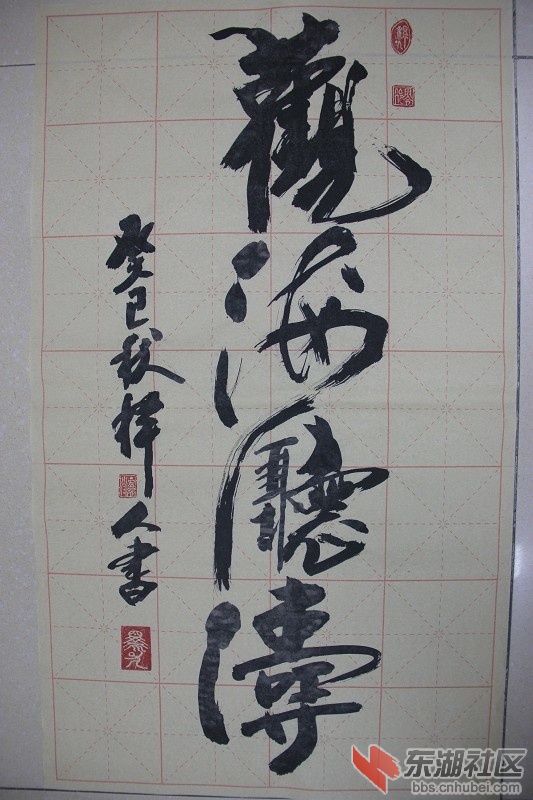 觀海廳濤
癸巳秋祥人書
东湖社区
bbs.cnhubei.com